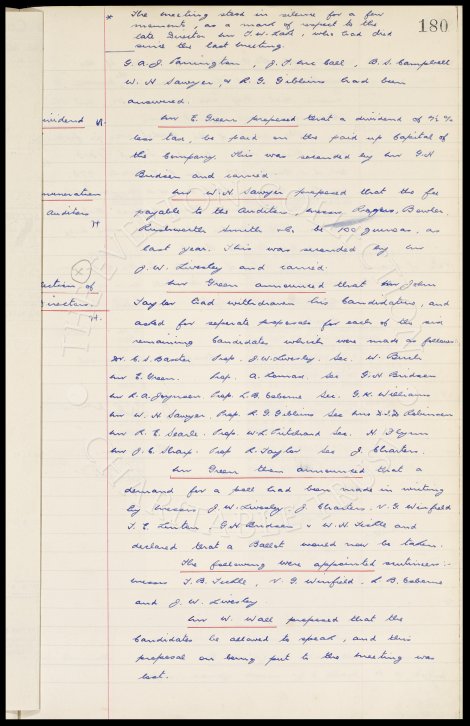 180
* The meeting stood in silence for a few
moments, as a mark of respect to the
late Director Mr T.W. , who had died
since the last meeting.
G.A.J. , J.F. Mc Call, B.S. Campbell
W.H Sawyer, & R.G. Gibbins had been
answered.
Mr E. Green proposed that a dividend of %
less tax, be paid on the paid up Capital of
the Company. This was seconded by Mr G.H
and carried.
Mr W.H. Sawyer proposed that the fee
payable to the Auditors, Messrs Rogers, Bowler
Rushworth Smith & Co. be 150 guineas, as
last year. This was seconded by Mr
J.W. Livesley and carried.
Mr Green announced that Mr John
Taylor had withdrawn his Candidature, and
asked for separate proposals for each of the six
remaining Candidates which were made as follows.
Dr. C.S. Baxter Prop. J.W. Livesley. Sec. W.
Mr E. Green. Prop. A. Sec. G.H
Mr R.A. Joynson. Prop. L.B. Osborne Sec. G.K. Williams
Mr W.H. Sawyer. Prop. R.G. Gibbins Sec Robinson
Mr R.E. Searle. Prop. W.L. Pritchard Sec. H Flynn
Mr J.C. Sharp. Prop R. Taylor Sec J. Charters.
Mr Green then announced that a
demand for a poll had been made in writing
by Messrs J.W. Livesley J. Charters. V.G. Winfield
T.E. Linton, G.H. & W.H and
declared that a Ballot would now be taken.
The following were appointed scrutineers:-
Messrs T.B. , V.G. Winfield. L B. Osborne
and J.W. Livesley
Mr W. Wall proposed that the
Candidates be allowed to speak, and this
proposal on being put to the meeting was
lost.